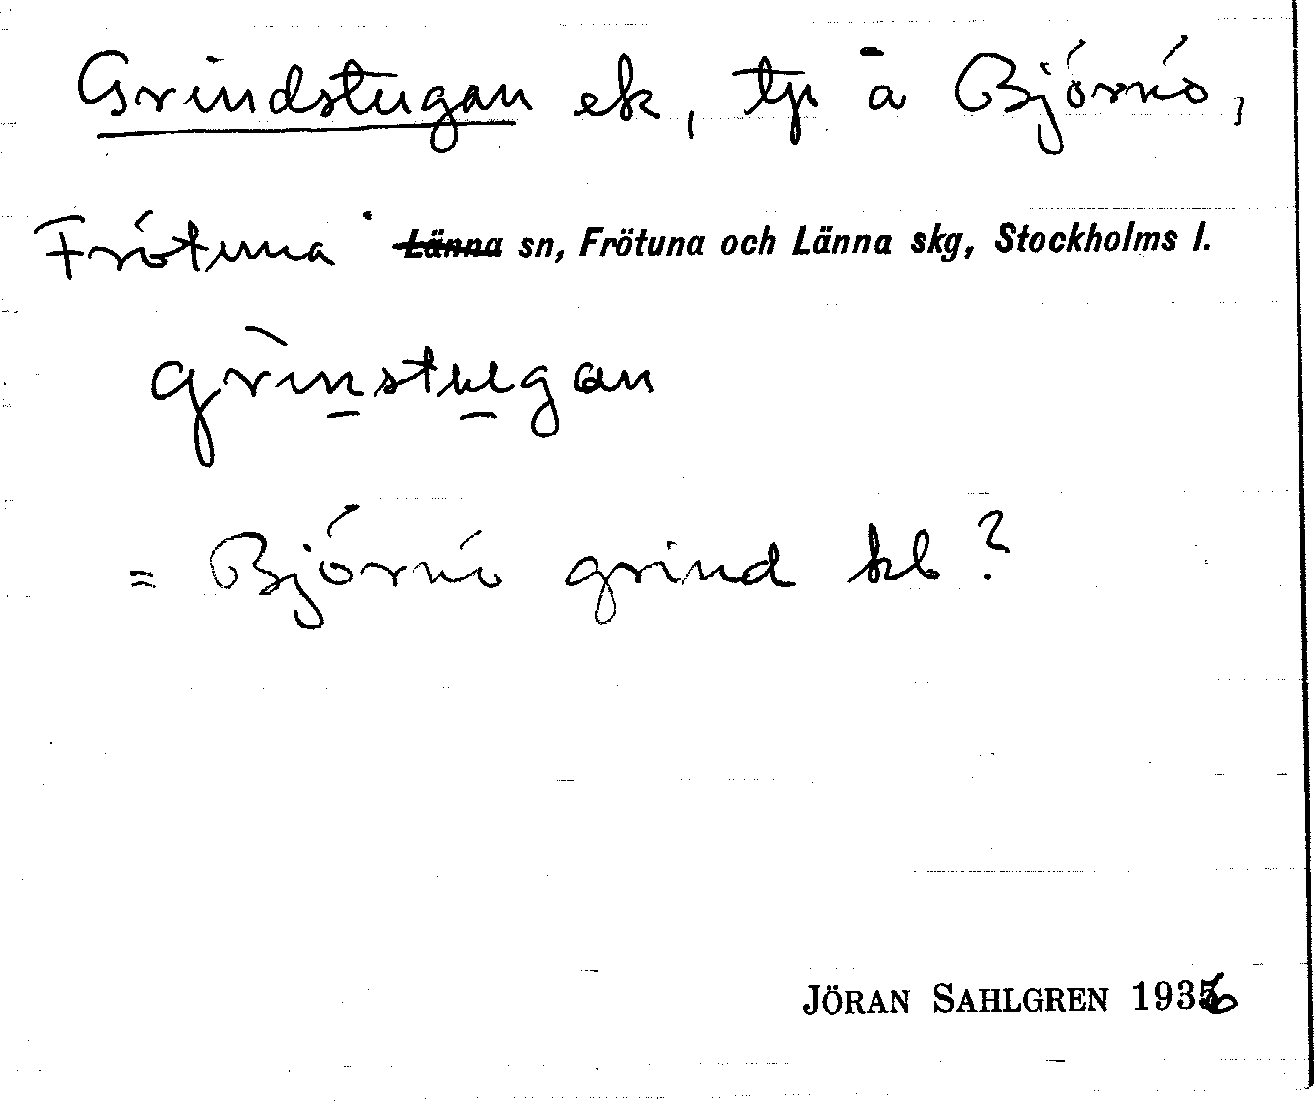 Grindstugan ek, tp å Björnö,
Frötuna ~~Länna~~ sn, Frötuna och Länna skg, Stockholms l.
grìnstugan
= Björnö grind kb?
JÖRAN SAHLGREN 1936